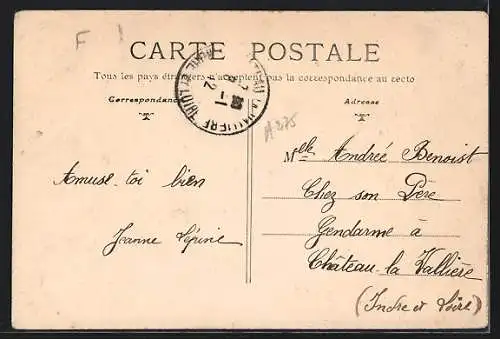 F
CARTE POSTALE
Tous les pays étrangers n'acceptent pas la correspondance au recto
Correspondance
Adresse
A 275
Amuse-toi bien
Jeanne Lépine
Melle Andrée Benoist
Chez son Père
Gendarme à
Château-la Vallière
(Indre et Loire)
LA VALLIERE
INDRE ET LOIRE
12